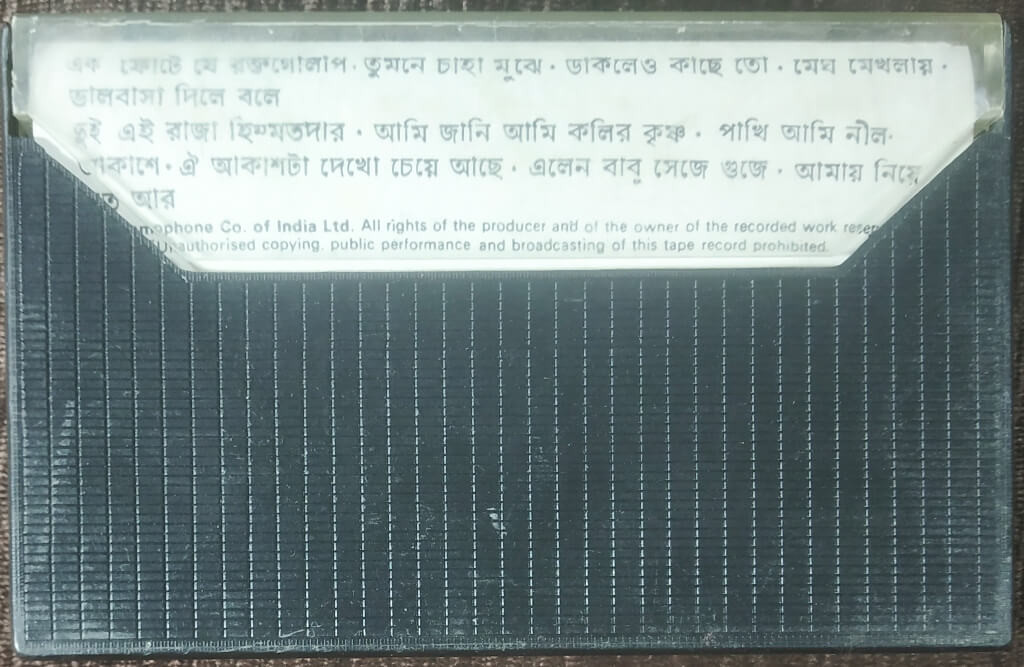 এক ফোটে যে রক্তগোলাপ · তুমনে চাহা মুঝে · ডাকলেও কাছে তো · মেঘ মেখলায় ·
ভালবাসা দিলে বলে
তুই এই রাজা হিম্মতদার · আমি জানি আমি কলির কৃষ্ণ · পাখি আমি নীল·
কাশে · ঐ আকাশটা দেখো চেয়ে আছে · এলেন বাবু সেজে গুজে · আমায় নিয়ে
আর
mophone Co. of India Ltd. All rights of the producer and of the owner of the recorded work reser
authorised copying, public performance and broadcasting of this tape record prohibited.